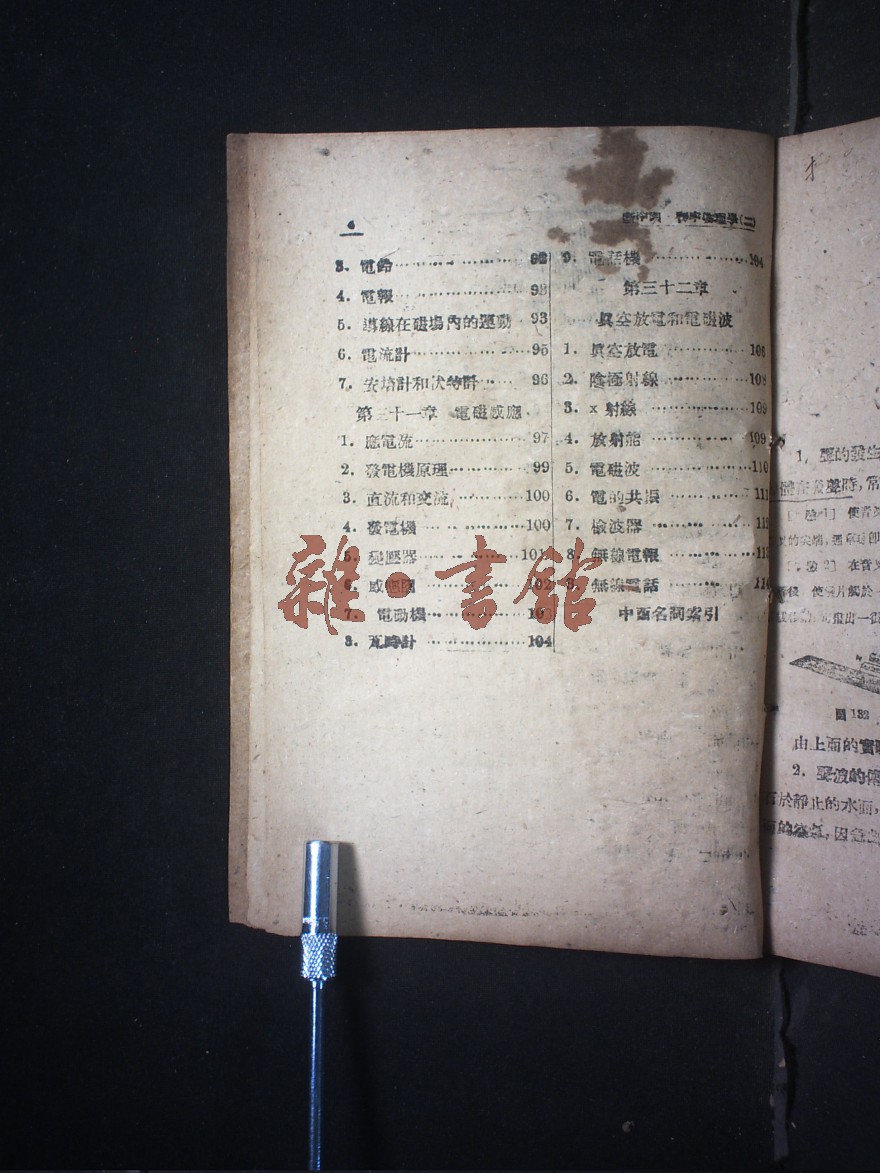 4
3. 電鈴 92
4. 電報 93
5. 導線在磁場內的運動 93
6. 電流計 95
7. 安培計和伏特計 96
第三十一章 電磁感應
1. 應電流 97
2. 發電機原理 99
3. 直流和交流 100
4. 發電機 100
5. 變壓器 101
6. 感應圈 102
7. 電動機 103
8. 瓦時計 104
9. 電話機 104
第三十二章
眞空放電和電磁波
1. 眞空放電 106
2. 陰極射線 108
3. x 射線 109
4. 放射能 109
5. 電磁波 110
6. 電的共振 111
7. 檢波器
8. 無線電報 113
9. 無線電話
中西名詞索引
雜·書館
1. 聲的發生
發聲時, 常
使音
圖 132
由上面的實
2. 聲波的傳
於靜止的水面,